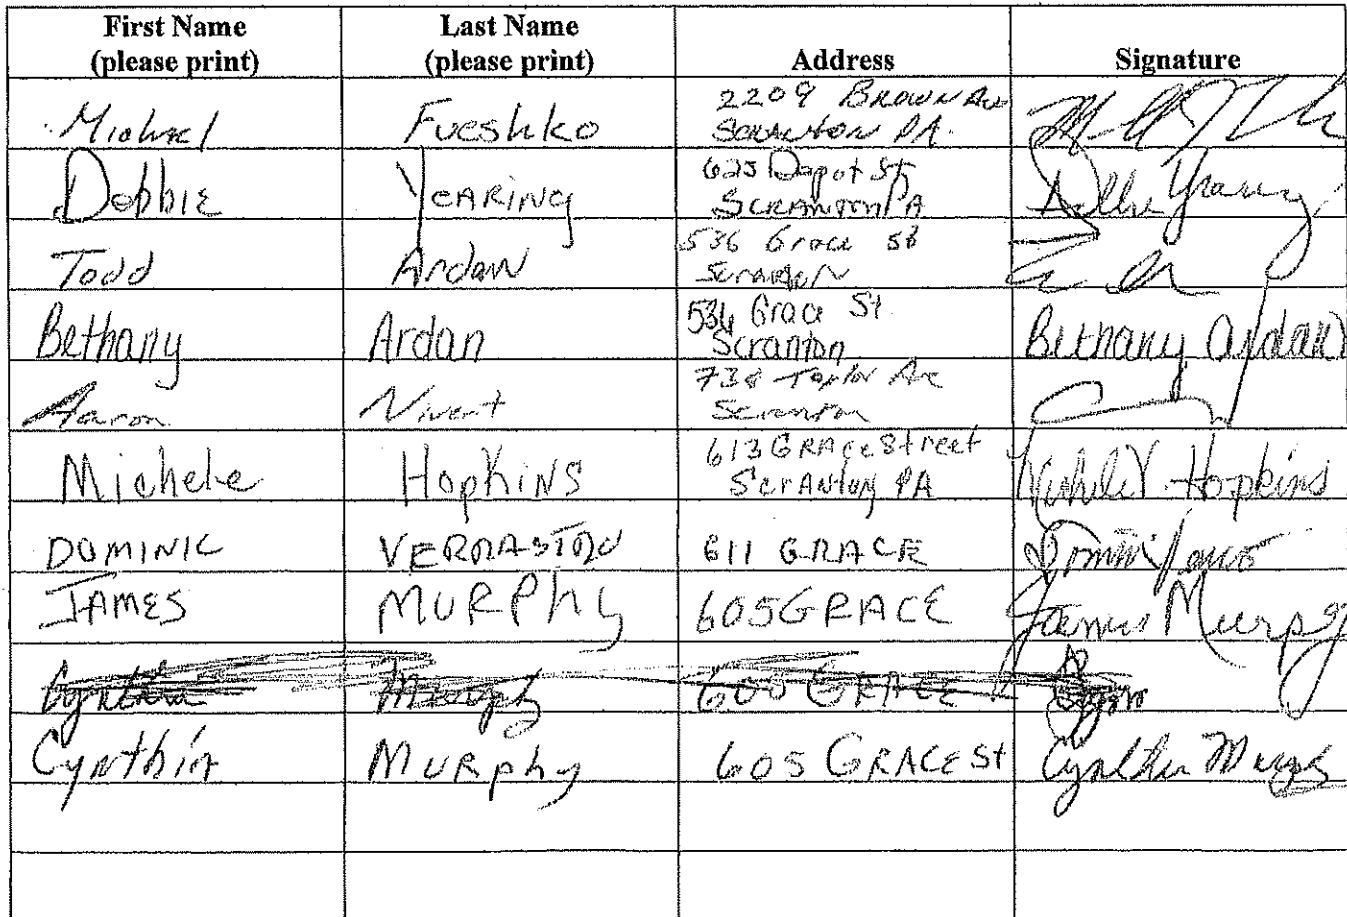 First Name (please print) Last Name (please print) Address Signature
Michael Fueshko 2209 BROWN Ave SCRANTON PA.
Debbie YEARING 625 Depot St SCRANTON PA
Todd Ardan 536 Grace St Scranton
Bethany Ardan 536 Grace St. Scranton Bethany Ardan
Aaron 738 Taylor Ave Scranton
Michele HopKiNS 613 GRAce Street ScrANton PA Michele Hopkins
DOMINIC 611 GRACE
JAMES MURPhy 605 GRACE James Murphy
Cynthia Murphy 605 GRACE
Cynthia MURphy 605 GRACE St Cynthia Murphy